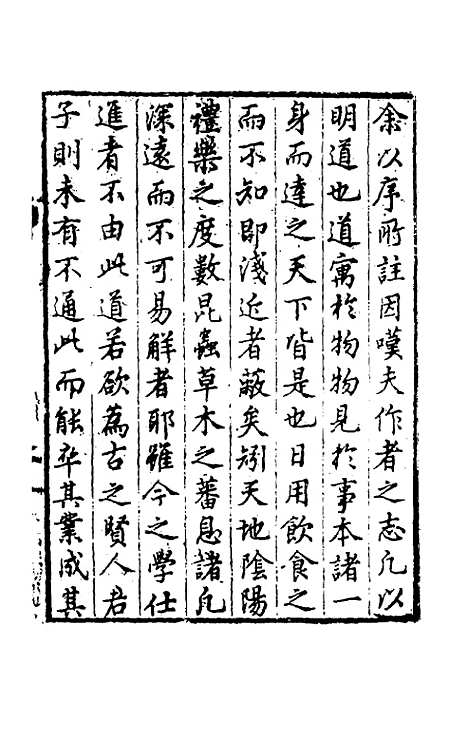 余以序所註因嘆夫作者之志凡以
明道也道寓於物物見於事本諸一
身而達之天下皆是也日用飲食之
而不知即淺近者蔽矣矧天地陰陽
禮樂之度數昆蟲草木之蕃息諸凡
深遠而不可易解者耶雖今之學仕
進者不由此道若欲為古之賢人君
子則未有不通此而能卒其業成其